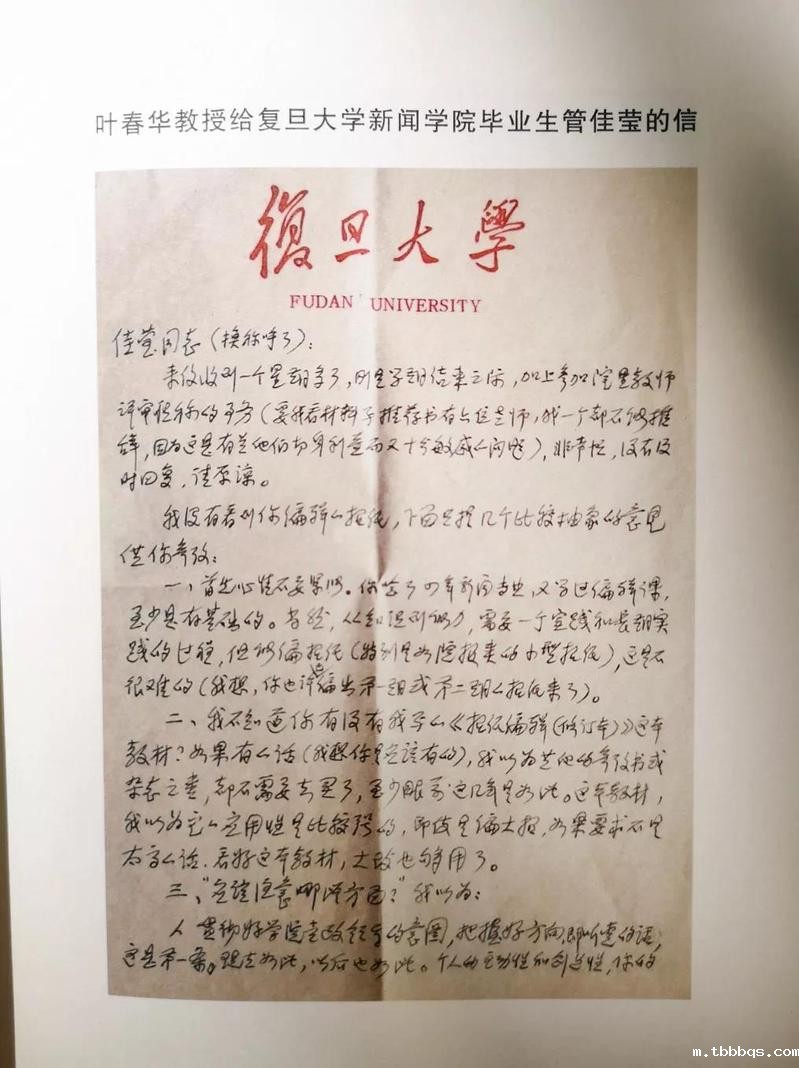 叶春华教授给复旦大学新闻学院毕业生管佳莹的信
復旦大學
FUDAN UNIVERSITY
佳莹同志(换称呼了):
来信收到一个星期多了,刚是学期结束之际,加上参加院里教师
评审职称的任务(要我看材料予推荐书有五位老师,我一个都不能推
辞,因为这是有关他们切身利益而又十分敏感的问题),非常忙,没有及
时回复,请原谅。
我没有看到你编辑的报纸,下面只提几个比较抽象的意见
供你参考:
一、首先心情不要紧张。你学了四年新闻专业,又学过编辑课,
至少是有基础的。当然,从知识到能力,需要一个实践和长期实
践的过程,但以编报纸(特别是如院报类的小型报纸),这是不
很难的(我想,你也许编出第一期或第二期的报纸来了)。
二、我不知道你有没有我写的《报纸编辑(修订本)》这本
教材?如果有的话(我想你是应该有的),我以为其他的参考书或
杂志之类,都不需要去买了,至少眼前这几年是如此。这本教材,
我以为它的应用性是比较强的,即使是编大报,如果要求不是
太高的话,看好这本教材,大致也够用了。
三、“应该注意哪些方面?”我以为:
1. 贯彻好学院党政领导的意图,把握好方向,
这是第一条。现在如此,以后也如此。个人的主动性和创造性,你的
m.tbbbqs.com